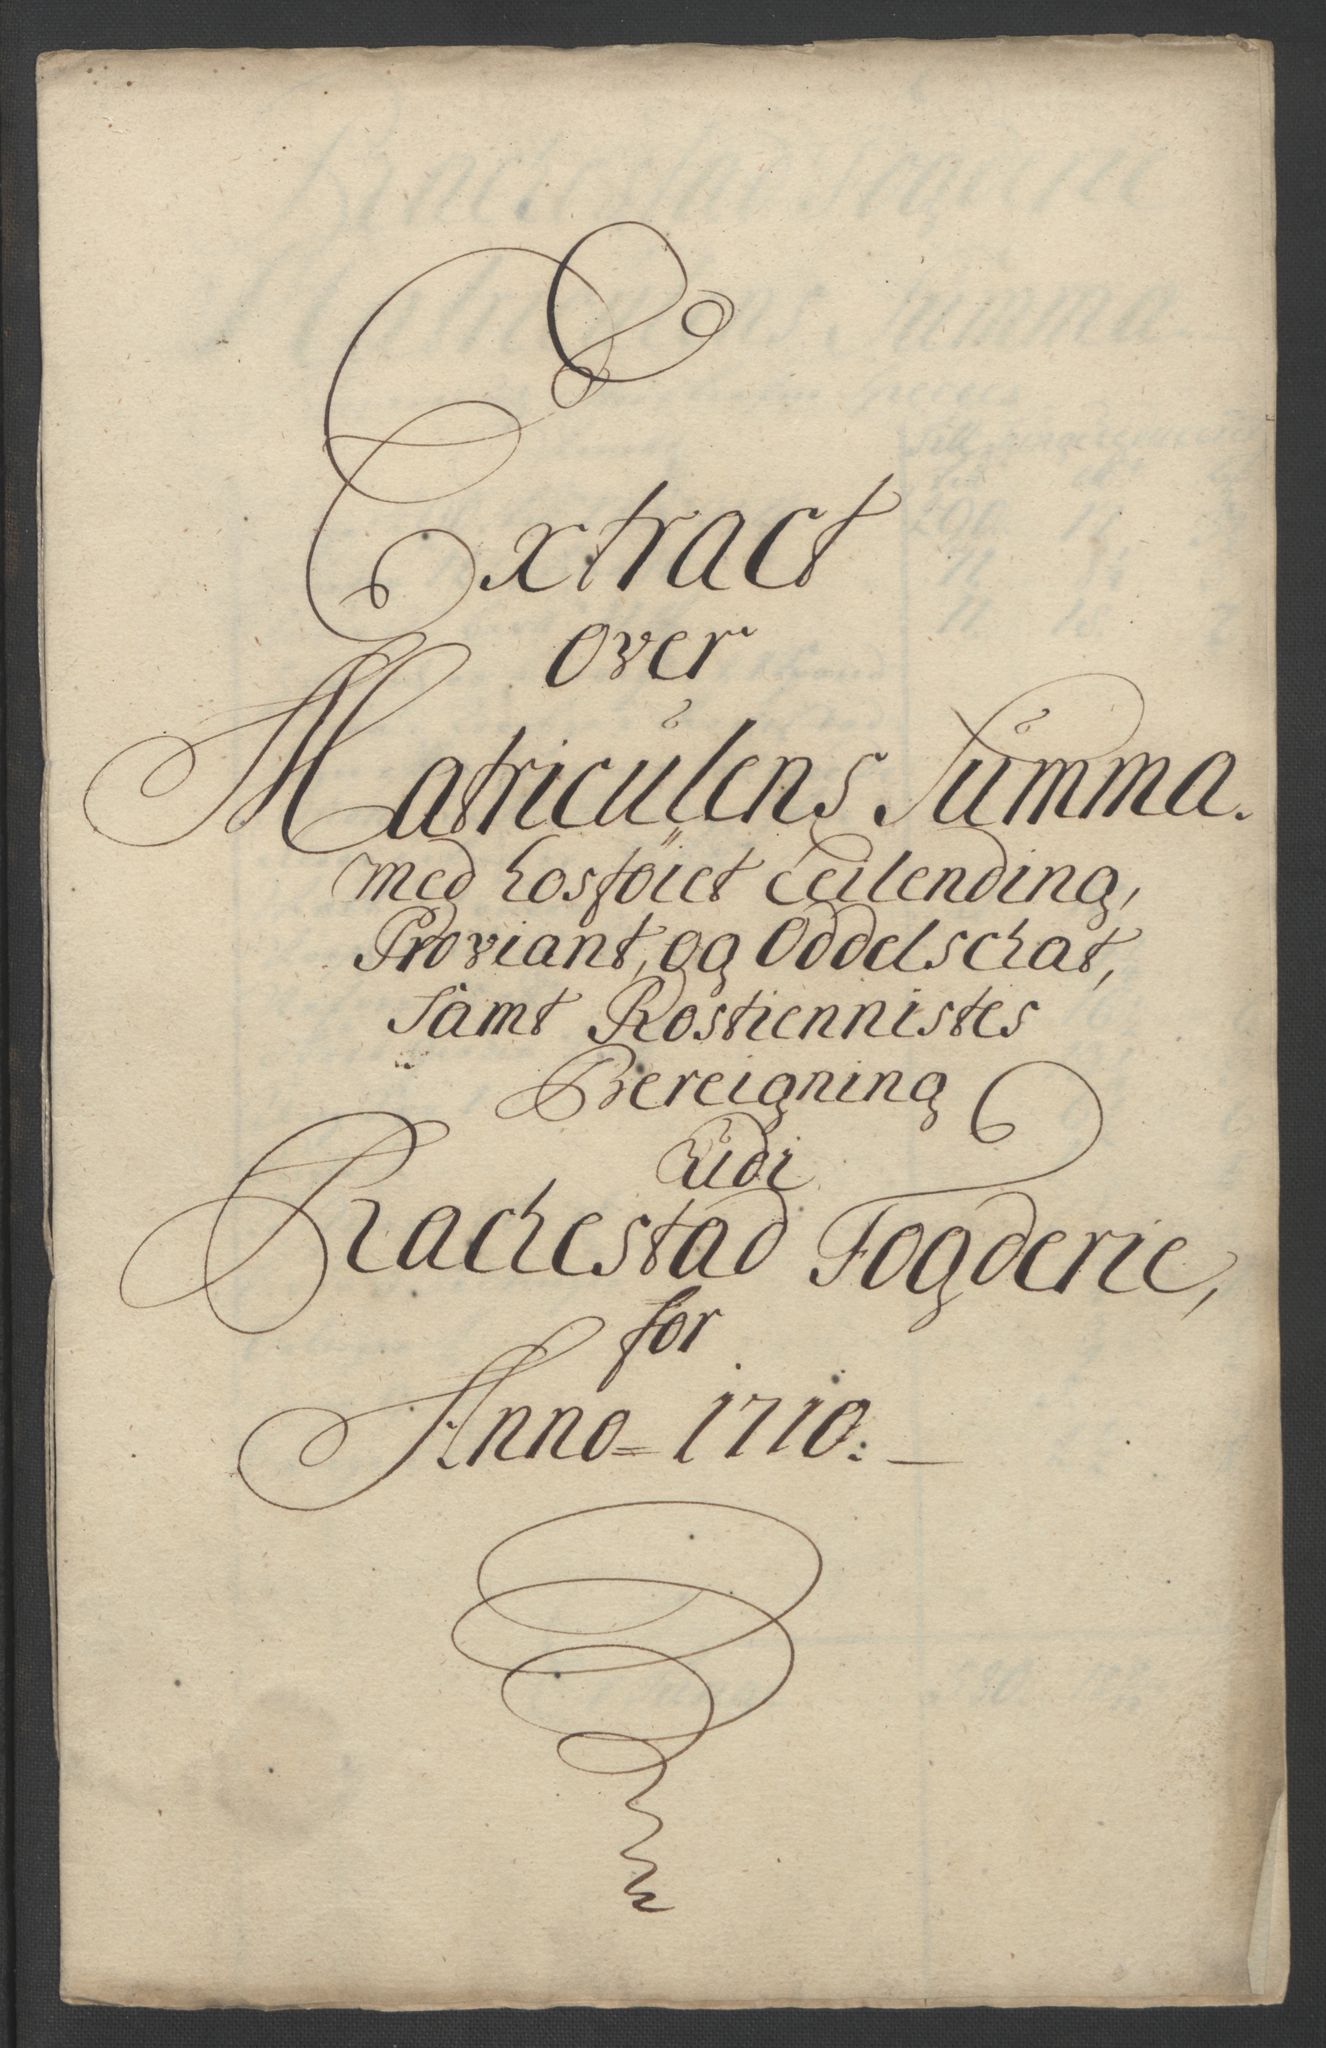 Extract
over
Matriculens Summa.
med hosføiet Leilending,
Proviant, og Oddelschat,
samt Rostiennistes
Bereigning
udi
Rachestad Fogderie,
for
Anno= 1710.